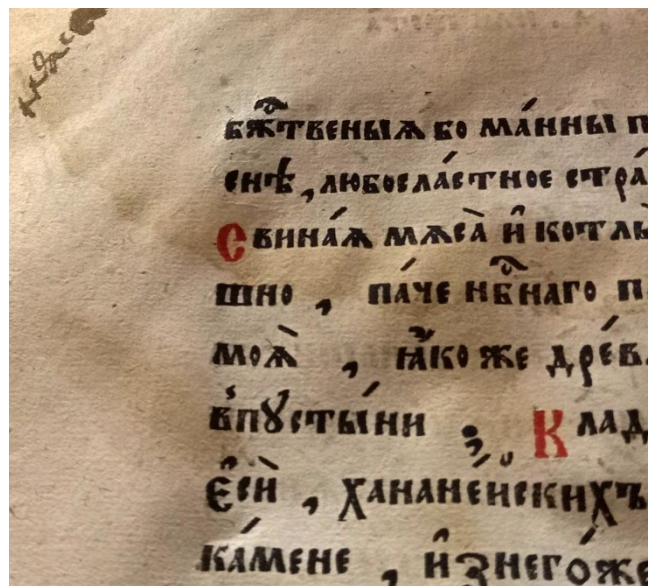 бж҃твеныѧ бо ма́нны
снѣ, любосла́стное
Свина́ѧ мѧса̀ и҆ котлы̀
шно, па́че нб҃наго
моѧ̀, ꙗ҆́коже
впꙋсты́ни ;
є҆сѝ, ханане́йскихъ
ка́мене, и҆з̾него́же